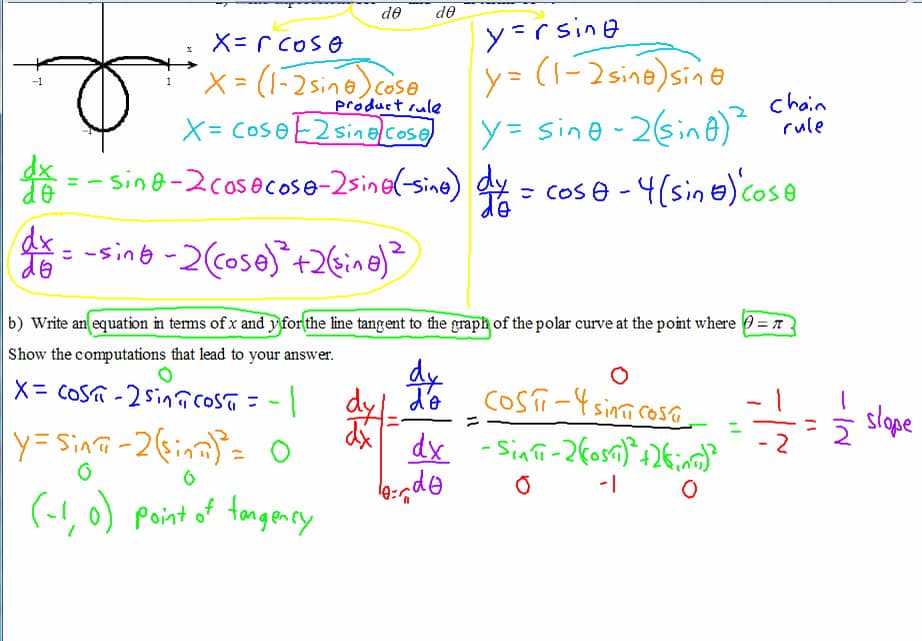 dθ dθ
x
-1 1
X = r cos θ
X = (1-2sinθ)cosθ
product rule
X = cosθ -2sinθ cosθ
dx/dθ = -sinθ-2cosθcosθ-2sinθ(-sinθ)
dx/dθ = -sinθ -2(cosθ)²+2(sinθ)²
y = r sin θ
y = (1-2sinθ)sinθ
y = sinθ - 2(sinθ)² chain rule
dy/dθ = cosθ - 4(sinθ)' cosθ
b) Write an equation in terms of x and y for the line tangent to the graph of the polar curve at the point where θ = π
Show the computations that lead to your answer.
0
X = cosπ - 2 sinπ cosπ = -1
y = sinπ - 2(sinπ)² = 0
0 0
(-1, 0) point of tangency
0
dy/dx|θ=π = (dy/dθ)/(dx/dθ) = (cosπ - 4 sinπ cosπ)/(-sinπ - 2(cosπ)² + 2(sinπ)²) = -1/-2 = 1/2 slope
0 -1 0